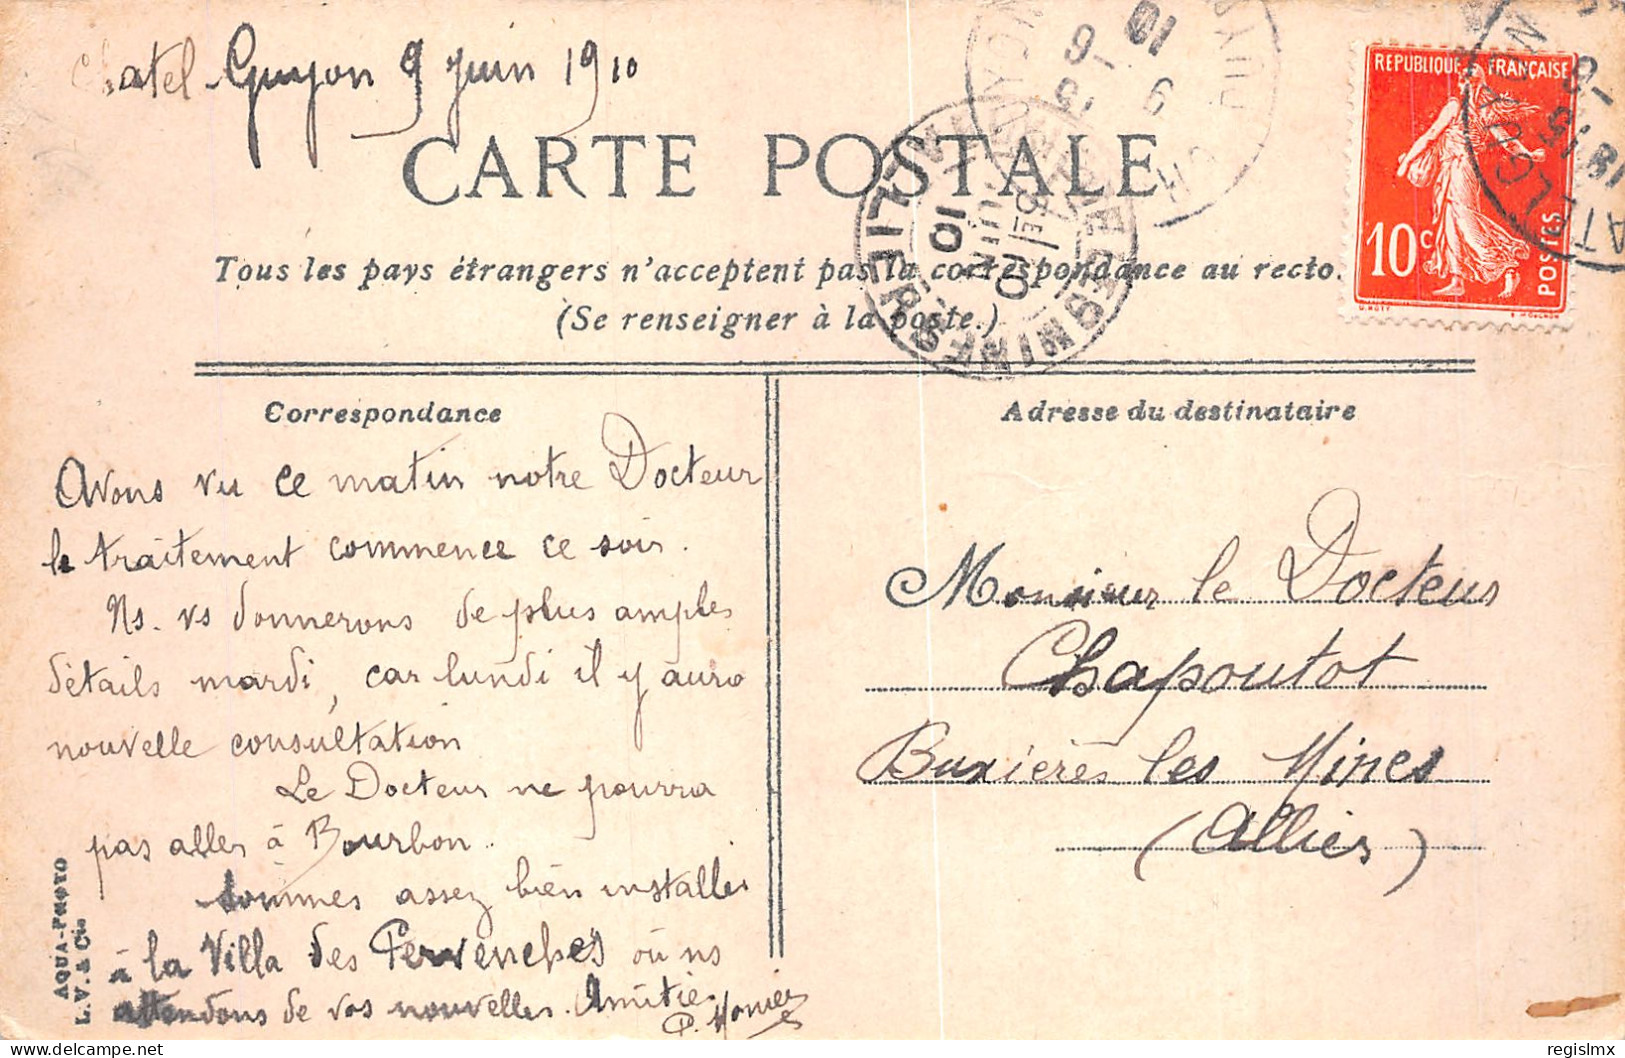 Chatel Guyon 9 juin 1910
CARTE POSTALE
Tous les pays étrangers n'acceptent pas la correspondance au recto.
(Se renseigner à la poste.)
REPUBLIQUE FRANÇAISE
10c
POSTES
Correspondance
Avons vu ce matin notre Docteur
le traitement commence ce soir.
Ns. vs donnerons de plus amples
détails mardi, car lundi il y aura
nouvelle consultation
Le Docteur ne pourra
pas aller à Bourbon.
Sommes assez bien installés
à la Villa des Pervenches où ns
attendons de vos nouvelles. Amitiés
AQUA-PHOTO
L.V. & Cie
Adresse du destinataire
Monsieur le Docteur
Chapoutot
Buxières les Mines
(Allier)
regislmx